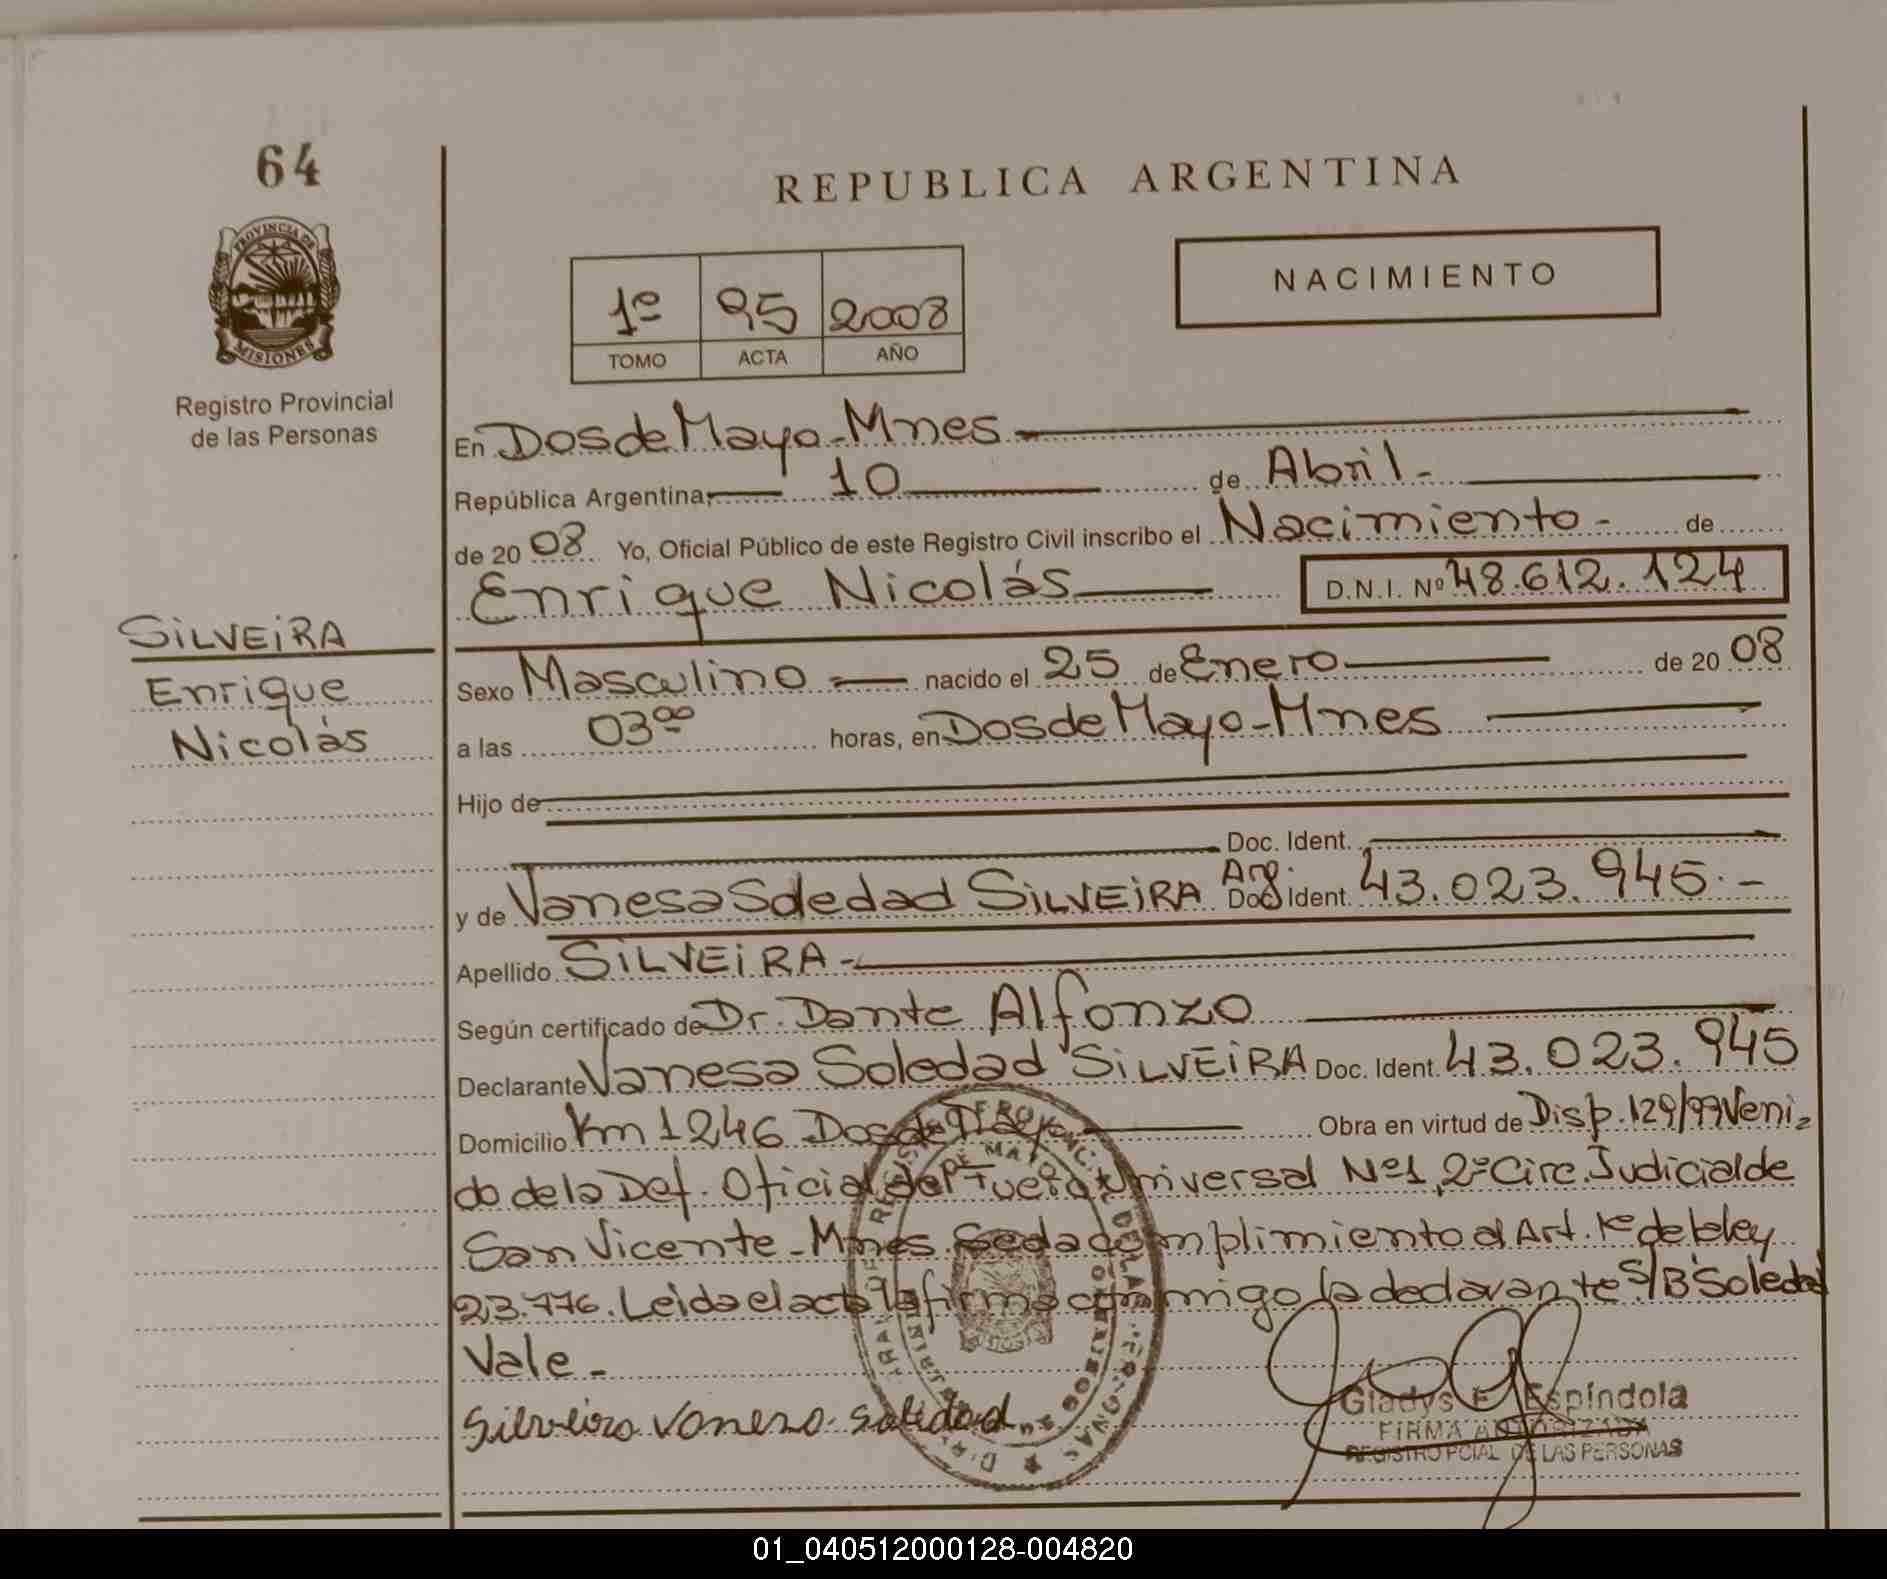 64
REPUBLICA ARGENTINA
PROVINCIA DE MISIONES
Registro Provincial
de las Personas
NACIMIENTO
1º 95 2008
TOMO ACTA AÑO
En Dos de Mayo - Mnes
República Argentina, 10 de Abril -
de 20 08 Yo, Oficial Público de este Registro Civil inscribo el Nacimiento - de
Enrique Nicolás D.N.I. Nº 48.612.124
SILVEIRA
Enrique
Nicolás
Sexo Masculino nacido el 25 de Enero de 20 08
a las 03ºº horas, en Dos de Mayo - Mnes
Hijo de
Doc. Ident.
y de Vanesa Soledad SILVEIRA Arg. Doc Ident. 43.023.945.-
Apellido SILVEIRA -
Según certificado de Dr. Dante Alfonzo
Declarante Vanesa Soledad SILVEIRA Doc. Ident. 43.023.945
Domicilio Km 1246 Dos de Mayo Obra en virtud de Disp. 129/99 Veni-
do de la Def. Oficial del Fuero Universal Nº1, 2º Circ. Judicial de
San Vicente - Mnes. Se da complimiento al Art. 1º de la ley
23.776. Leida el acta la firma conmigo la declarante S/B Soledad
Vale -
Silveira Vanesa Soledad
Gladys E. Espíndola
FIRMA AUTORIZADA
REGISTRO PCIAL DE LAS PERSONAS
01_040512000128-004820